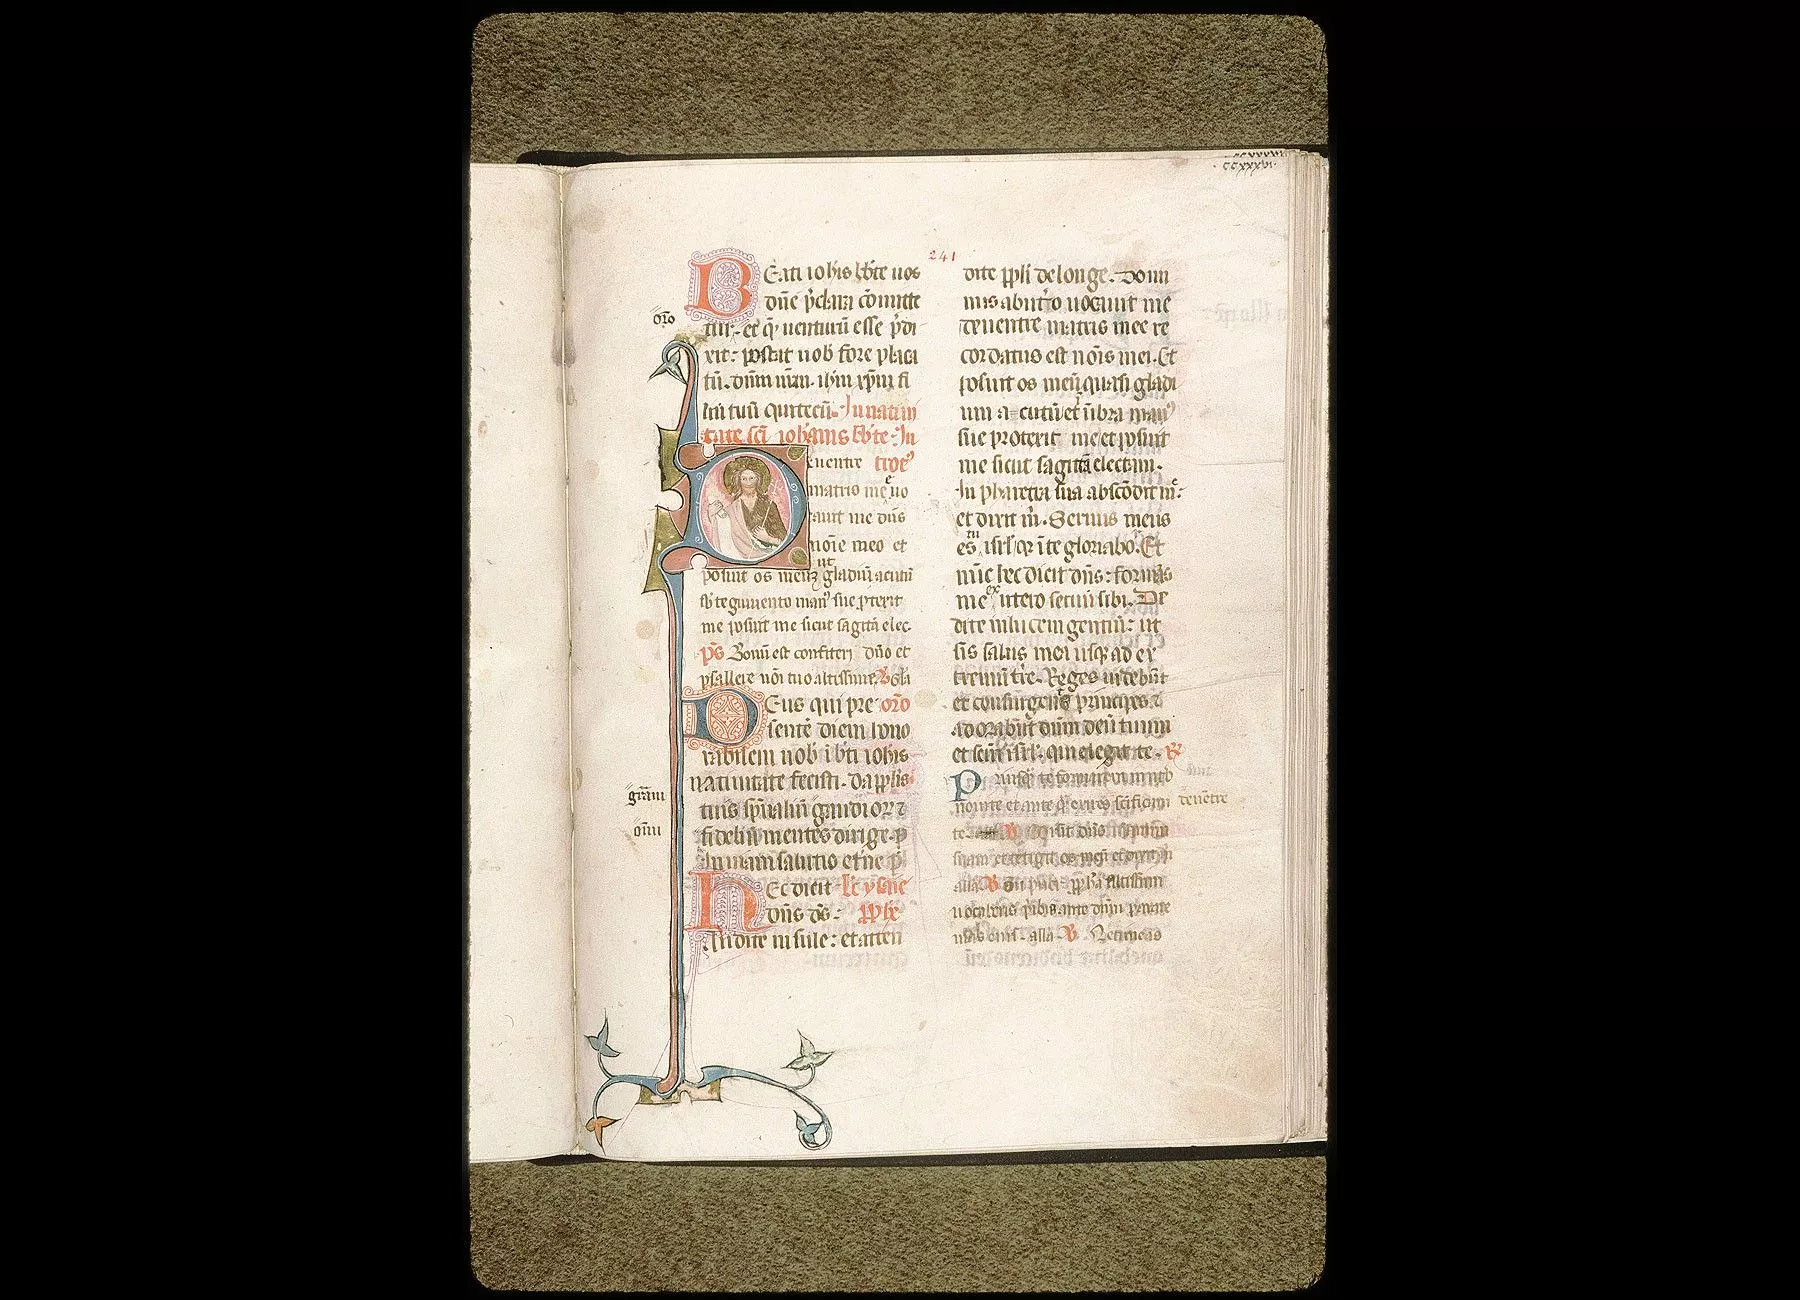 ccxxxvi.
241
BEati ioh̄is bb̄te nos
dn̄e p̄clara cōmitte
tur. et q̄ uenturū esse p̄di
xit: post̄at nob̄ fore placa
tū. dn̄m nr̄m. ih̄m xp̄m fi
lm̄ tuū qui tecū. In natiui
tate sc̄i ioh̄anis bb̄te. In
De uentre troꝰ
matris meͤ uo
cauit me dn̄s
noīe meo et
posuit os meuꝫ ut gladiū acutū
sb̄ tegumento manꝰ sue p̄texit
me posuit me sicut sagitā elec
p̄s Bonū est confiteri dn̄o et
psallere nōi tuo altissime. V̄ Gla
DEus qui pre orō
sentē diem hono
rabilem nob̄ i bt̄i ioh̄is
natiuitate fecisti. da pplis
tuis sp̄ualiū gaudioꝝ ⁊
fideliū mentes dirige. p̄
In uiam salutis et ne p̄
HEc dicit Lc̄ ysaie
dn̄s ds̄. pph̄e
Audite insule: et atten
orō
grām
oīnī
dite ppl̄i de longe. Domi
nus ab ut̓o uocauit me
de uentre matris mee re
cordatus est nōis mei. Et
posuit os meū quasi gladi
um acutū et ūbra manꝰ
sue protexit me et posuit
me sicut sagittā electam.
In pharetra sua abscōdit mͤ:
et dixit m̄. Seruus meus
es tu isrl̄ qꝛ ī te gloriabo. Et
nūc hec dicit dn̄s: formās
me ex utero seruū sibi. De
dite in lucem gentiū: ut
sis salus mea usqꝫ ad ex
tremū tr̄e. Reges uidebūt
et consurgent principes ⁊
adorabūt dn̄m deū tuum
et scm̄ isrl̄. qui elegit te. R̄
Priusqͣ te formarem in utō
noui te et ante q̄ exires sc̄ificaui de uentre
te V̄ Misit dn̄s manum
suam et tetigit os meū et dixit m̄
alla V̄ Tu puer pph̄a altissimi
uocaberis p̄ibis ante dn̄m parare
uias eius. alla V̄ Ne timeas